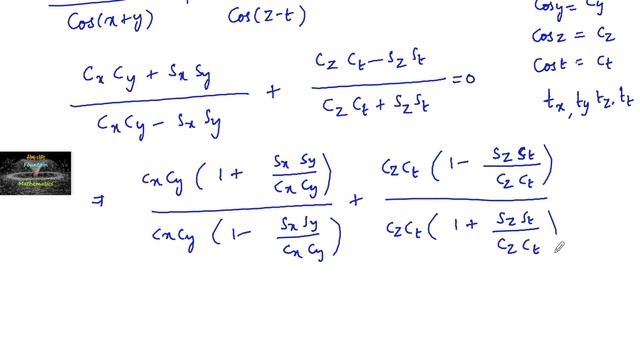 Cos(x+y)    Cos(z-t)
Cosy = Cy
Cosz = Cz
Cost = Ct
tx, ty tz, tt
(CxCy + SxSy)/(CxCy - SxSy) + (CzCt - SzSt)/(CzCt + SzSt) = 0
⇒ CxCy (1 + SxSy/CxCy) / CxCy (1 - SxSy/CxCy) + CzCt (1 - SzSt/CzCt) / CzCt (1 + SzSt/CzCt)
Fountain
Mathematics